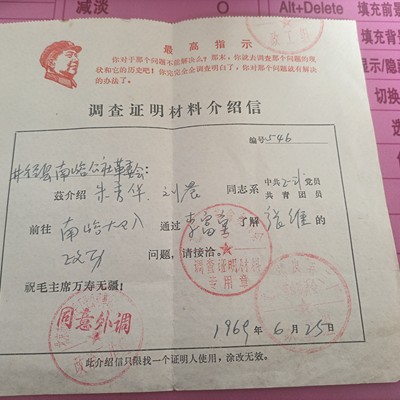 最高指示
你对于那个问题不能解决么？那末，你就去调查那个问题的现
状和它的历史吧！你完完全全调查明白了，你对那个问题就有解决
的办法了。
调查证明材料介绍信
编号546
井经县南峪公社革委会：
兹介绍 朱秀华 同志系 中共 党员
共青团员
前往 南峪大队 通过 李富堂 了解 的
问题，请接洽。
祝毛主席万寿无疆！
调查证明材料
专用章
同意外调
1969年6月25日
此介绍信只限找一个证明人使用，涂改无效。
减淡
Alt+Delete
填充前景
填充背景
显示/隐藏
切换
选